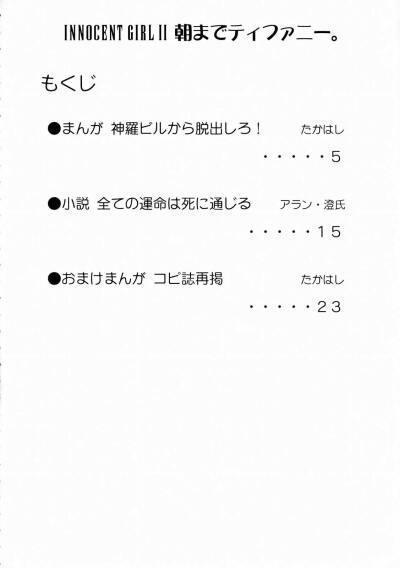 INNOCENT GIRL II 朝までティファニー。
もくじ
●まんが 神羅ビルから脱出しろ！ たかはし
・・・・・5
●小説 全ての運命は死に通じる アラン・澄氏
・・・・・15
●おまけまんが コピ誌再掲 たかはし
・・・・・23